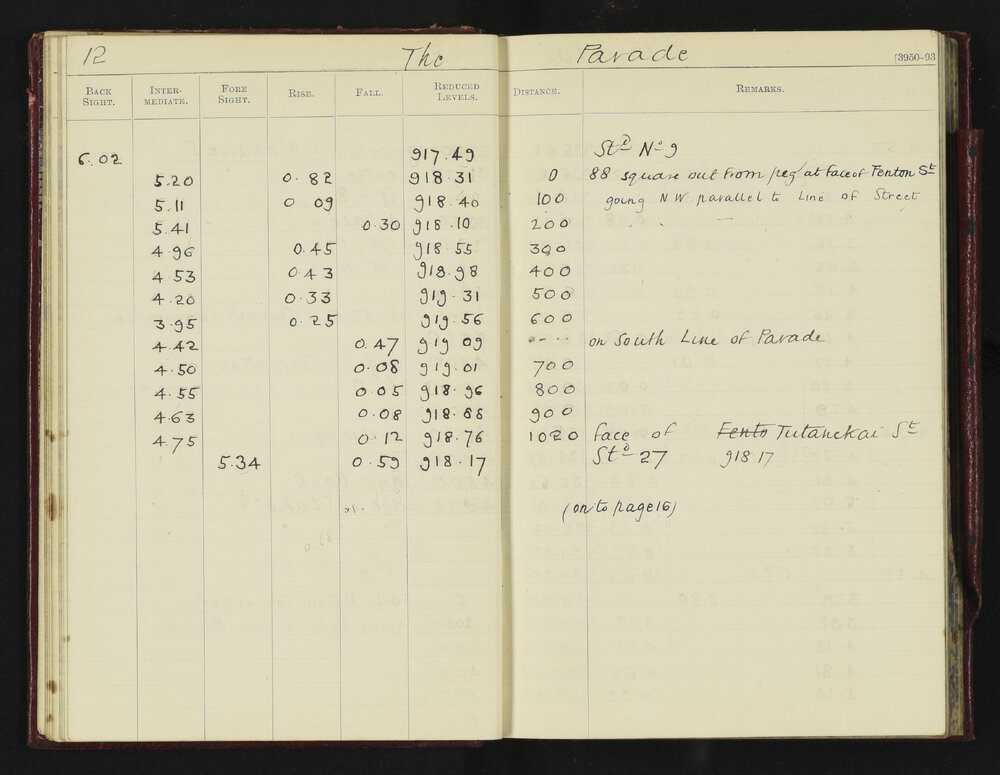 12 The Parade [3950-93
BACK SIGHT. INTER-MEDIATE. FORE SIGHT. RISE. FALL. REDUCED LEVELS. DISTANCE. REMARKS.
6.02 917.49 Std No 9
5.20 0.82 918.31 0 88 square out from peg at face of Fenton St
5.11 0 09 918.40 100 going N W. parallel to Line of Street
5.41 0.30 918.10 200
4.96 0.45 918.55 300
4.53 0.43 918.98 400
4.20 0.33 919.31 500
3.95 0.25 919.56 600
4.42 0.47 919 09 ---- on South Line of Parade
4.50 0.08 919.01 700
4.55 0.05 918.96 800
4.63 0.08 918.88 900
4.75 0.12 918.76 1020 face of Fento Tutanekai St
5.34 0.59 918.17 Std 27 918 17
(on to page 16)